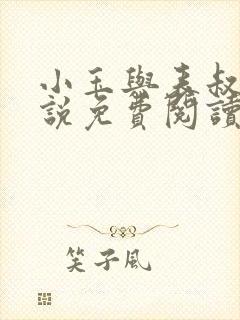 小玉與表叔
說免費閱讀
笑子風